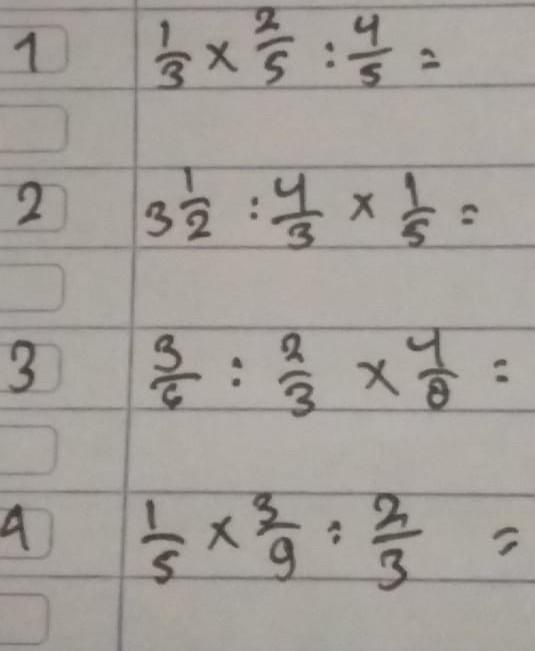 1 1/3 × 2/5 : 4/5 =
2 3 1/2 : 4/3 × 1/5 =
3 3/6 : 2/3 × 4/8 =
4 1/5 × 3/9 : 2/3 =